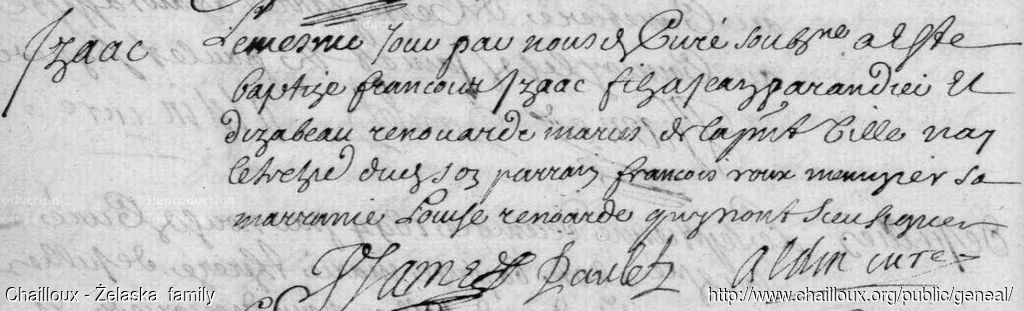 Izaac
Lemesme Jour par nous d Curé soubzne a esté
baptize francois Izaac filz a Jean parandier Et
dizabeau renouarde maries de la pnt Ville nay
le treize dud son parrain francois roux menuzier sa
marrenne Louise renoarde quy nont sceu signer
James Paulet aldin curé
Reproduction
Chailloux - Żelaska family
http://www.chailloux.org/public/geneal/